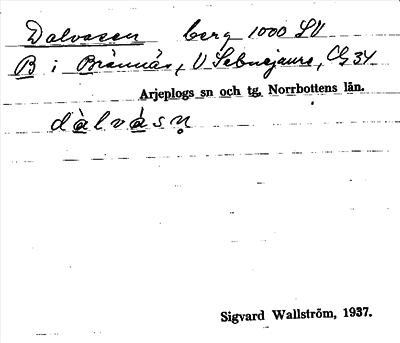 Dalvasen berg 1000 SV
B i Brännäs, V Sebnejaure, Cg 34
Arjeplogs sn och tg, Norrbottens län.
dàlvásṇ
Sigvard Wallström, 1937.